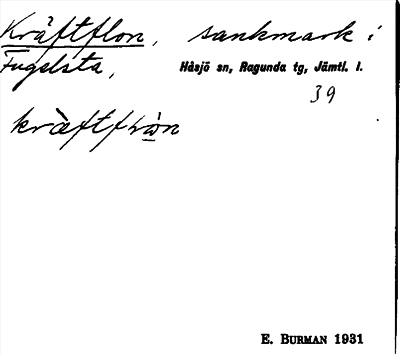 Kräftflon, sankmark i
Fugelsta,
Håsjö sn, Ragunda tg, Jämtl. l.
39
E. BURMAN 1931